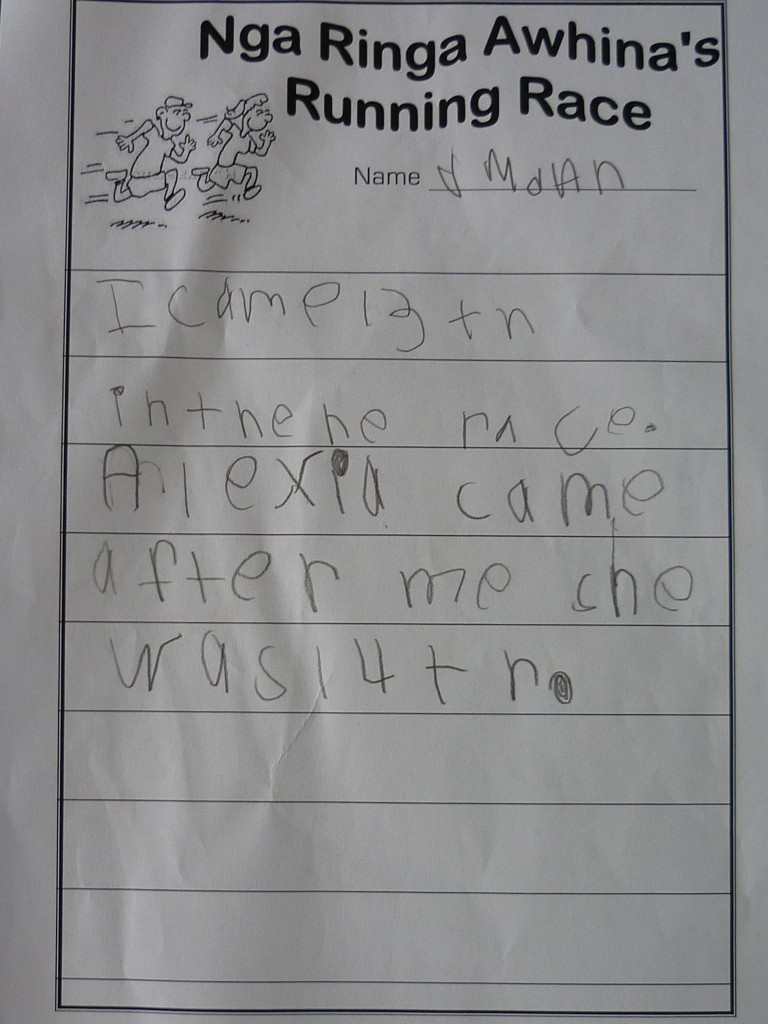 Nga Ringa Awhina's
Running Race
Name
I came 13th
in thehe race.
Alexia came
after me she
was 14th.